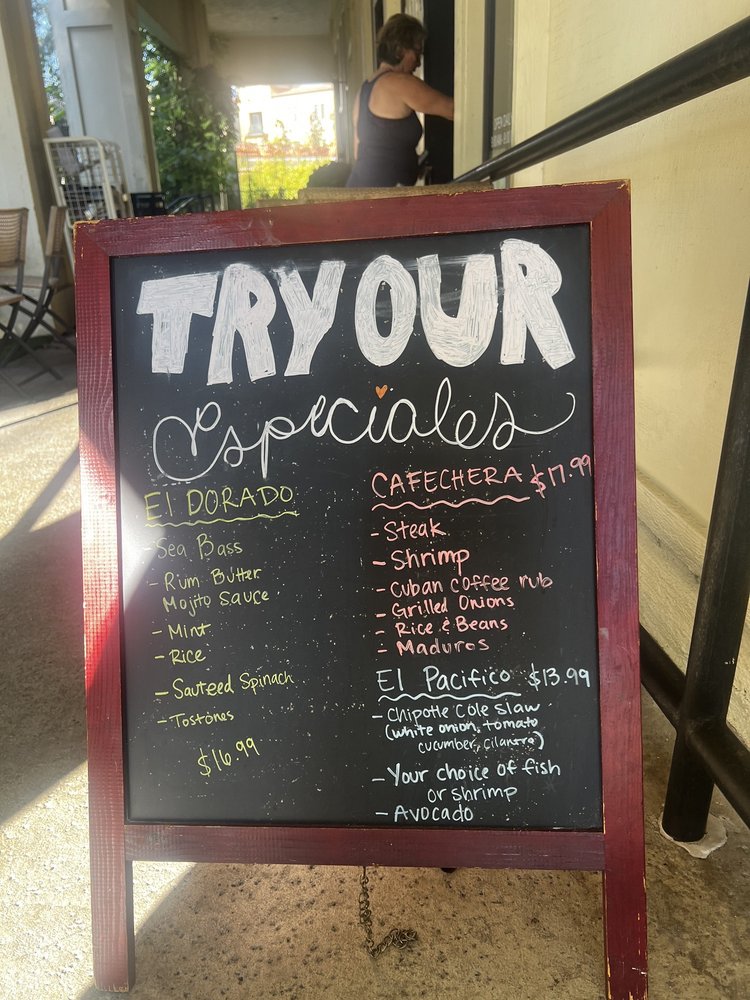 TRY OUR
Especiales
El DORADO
- Sea Bass
- Rum Butter
Mojito Sauce
- Mint
- Rice
- Sauteed Spinach
- Tostones
$16.99
CAFECHERA $17.99
- Steak
- Shrimp
- Cuban coffee rub
- Grilled Onions
- Rice & Beans
- Maduros
El Pacifico $13.99
- Chipotle Cole Slaw
(white onion, tomato
cucumber, cilantro)
- Your choice of fish
or shrimp
- Avocado